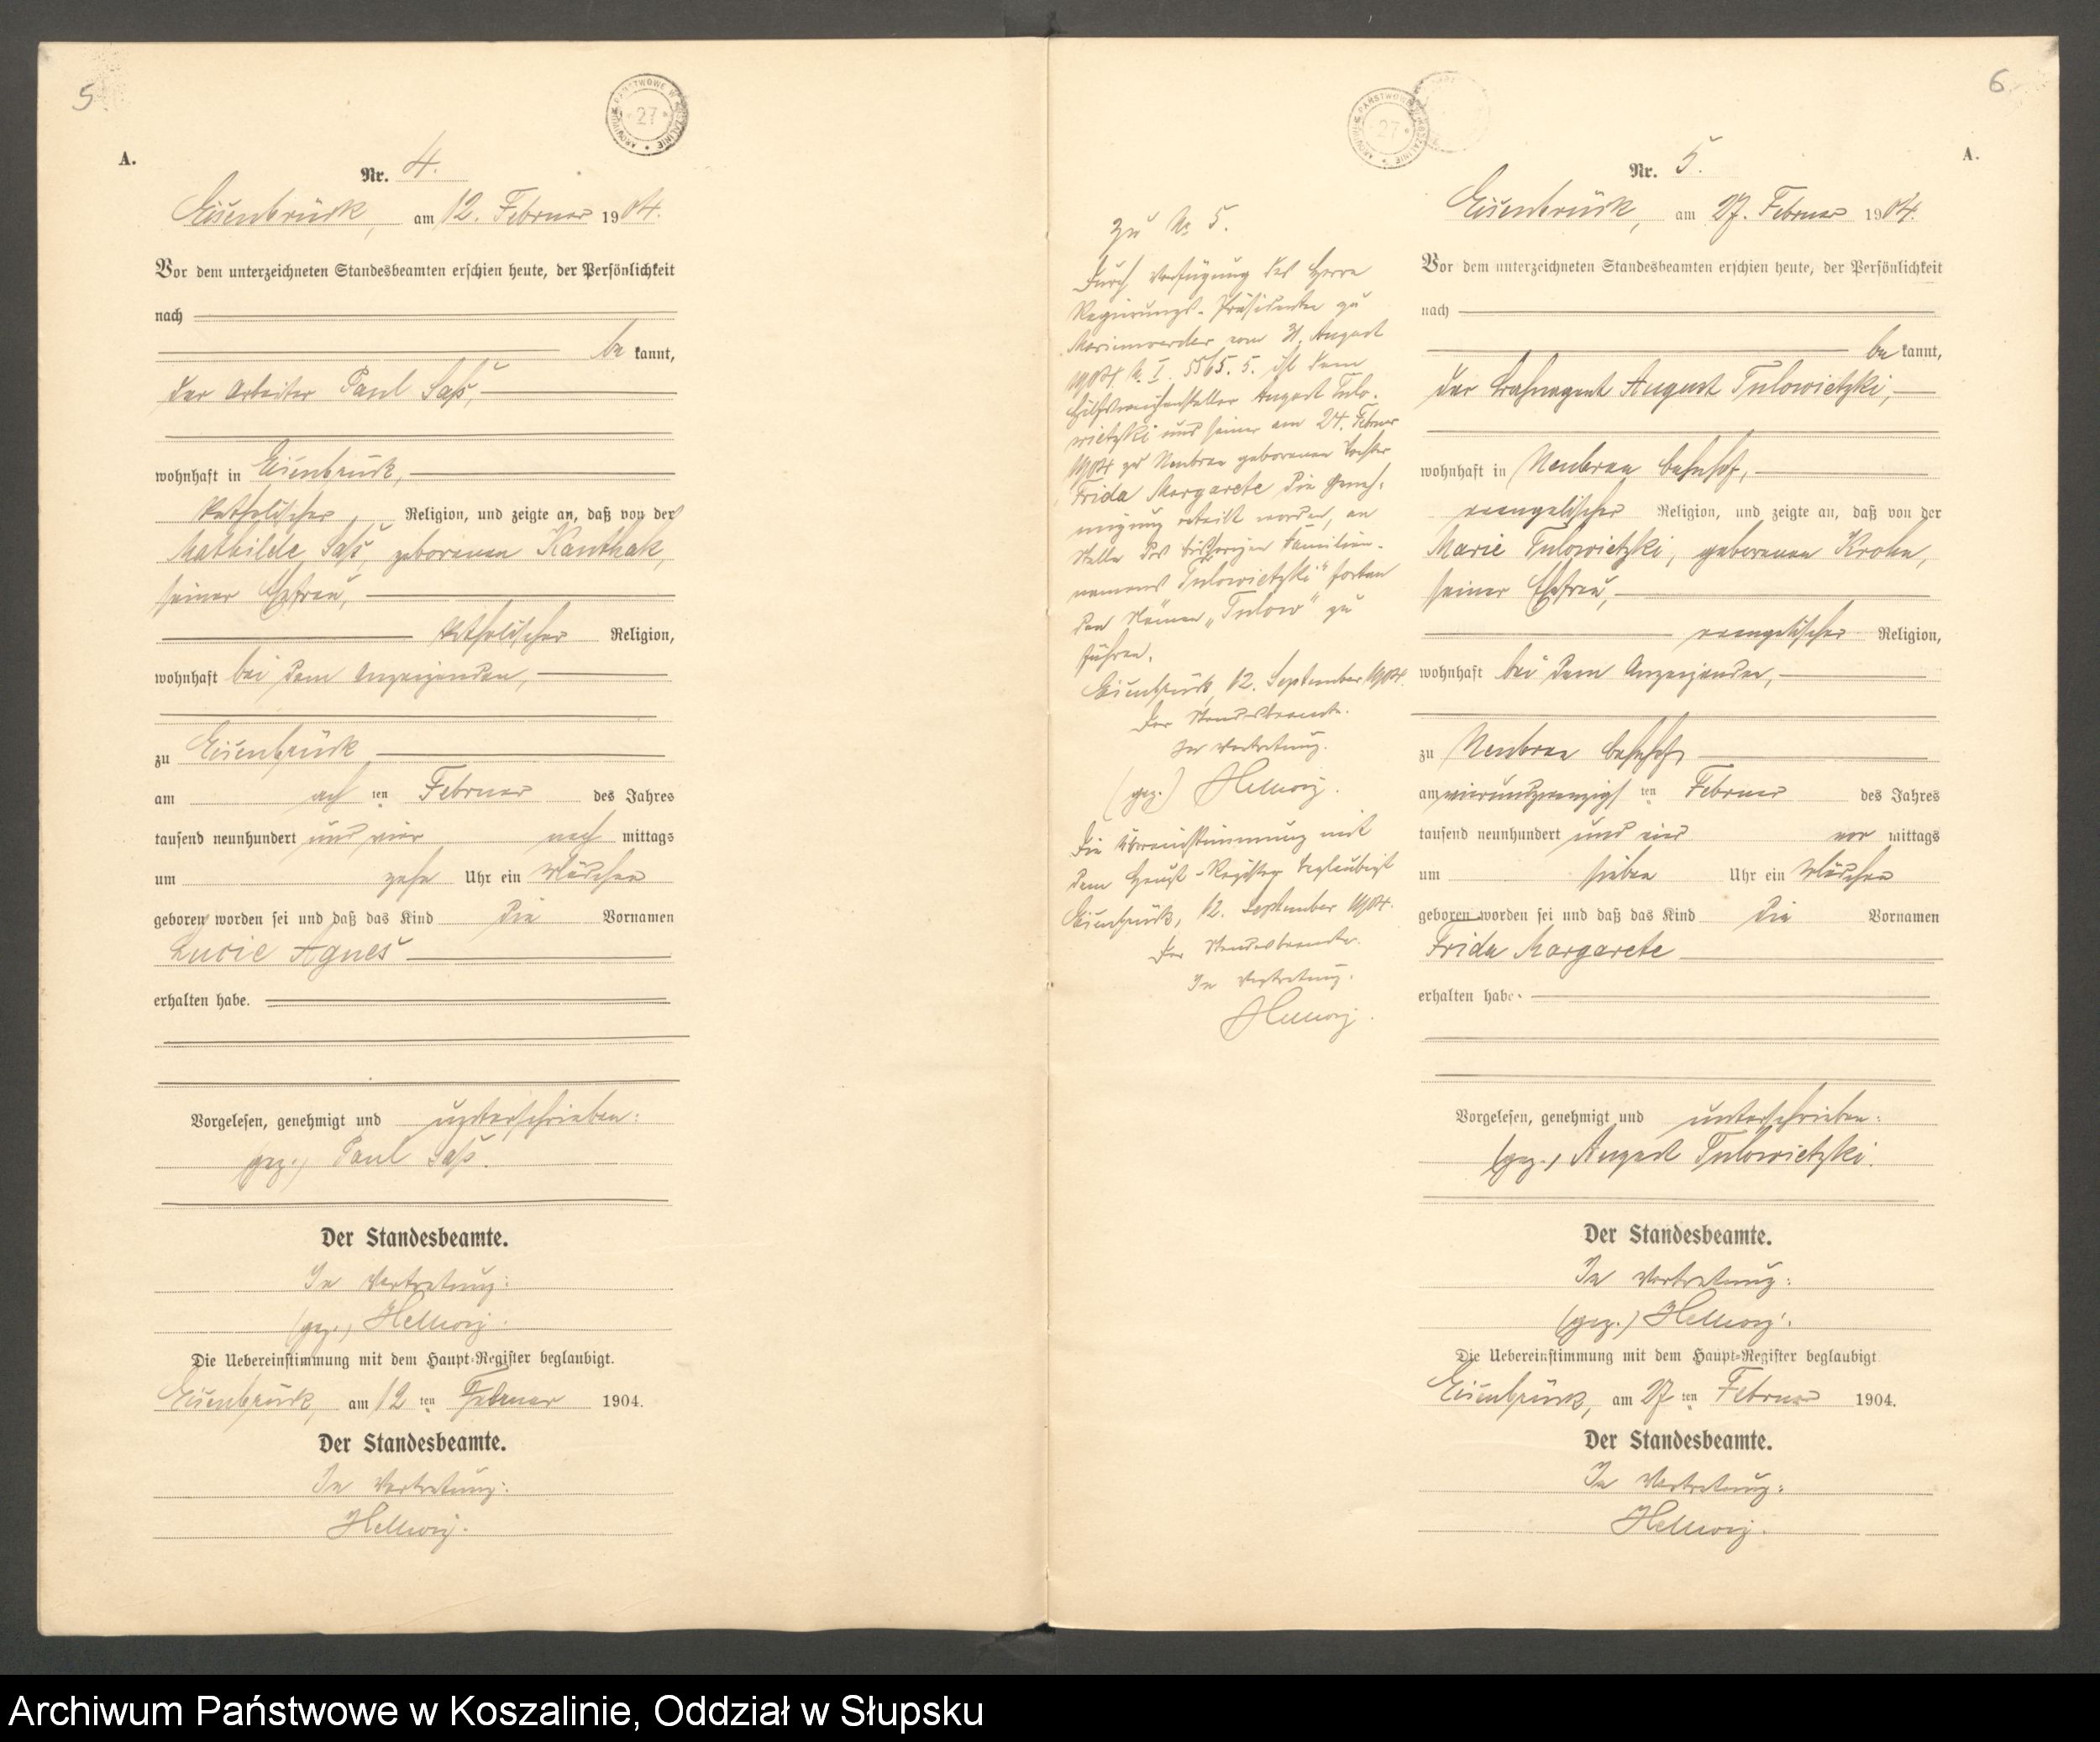 5
ARCHIWUM PAŃSTWOWE W KOSZALINIE * 27 *
A.
Nr. 4.
Eisenbrück, am 12. Februar 1904.
Vor dem unterzeichneten Standesbeamten erschien heute, der Persönlichkeit
nach
be kannt,
der Arbeiter Paul Saß,
wohnhaft in Eisenbrück,
katholischer Religion, und zeigte an, daß von der
Mathilde Saß, geborenen Kanthak,
seiner Ehefrau,
katholischer Religion,
wohnhaft bei dem Anzeigenden,
zu Eisenbrück
am ach ten Februar des Jahres
tausend neunhundert und vier nach mittags
um zehn Uhr ein Mädchen
geboren worden sei und daß das Kind die Vornamen
Lucie Agnes
erhalten habe.
Vorgelesen, genehmigt und unterschrieben:
(gez.) Paul Saß.
Der Standesbeamte.
In Vertretung:
(gez.) Hellwig.
Die Uebereinstimmung mit dem Haupt-Register beglaubigt.
Eisenbrück, am 12 ten Februar 1904.
Der Standesbeamte.
In Vertretung:
Hellwig.
6
ARCHIWUM PAŃSTWOWE W KOSZALINIE * 27 *
Zu № 5.
Durch Verfügung des Herrn
Regierungs-Präsidenten zu
Marienwerder vom 31. August
1904 5565. 5. ist dem
Hilfsweichensteller August Tulo-
wietzki und seiner am 24. Februar
1904 zu Neubrau geborenen Tochter
Frida Margarete die Geneh-
migung erteilt worden, an
Stelle des bisherigen Familien-
namens "Tulowietzki" fortan
den Namen „Tulow" zu
führen.
Eisenbrück, 12. September 1904.
Der Standesbeamte.
In Vertretung.
(gez.) Hellwig.
Die Übereinstimmung mit
dem Haupt-Register beglaubigt
Eisenbrück, 12. September 1904.
Der Standesbeamte.
In Vertretung.
Hellwig.
A.
Nr. 5.
Eisenbrück, am 27. Februar 1904.
Vor dem unterzeichneten Standesbeamten erschien heute, der Persönlichkeit
nach
be kannt,
der Bahnagent August Tulowietzki,
wohnhaft in Neubrau Bahnhof,
evangelischer Religion, und zeigte an, daß von der
Marie Tulowietzki, geborenen Krohn,
seiner Ehefrau,
evangelischer Religion,
wohnhaft bei dem Anzeigenden,
zu Neubrau Bahnhof
am vierundzwanzigs ten Februar des Jahres
tausend neunhundert und vier vor mittags
um sieben Uhr ein Mädchen
geboren worden sei und daß das Kind die Vornamen
Frida Margarete
erhalten habe.
Vorgelesen, genehmigt und unterschrieben:
(gez.) August Tulowietzki.
Der Standesbeamte.
In Vertretung:
(gez.) Hellwig.
Die Uebereinstimmung mit dem Haupt-Register beglaubigt
Eisenbrück, am 27 ten Februar 1904.
Der Standesbeamte.
In Vertretung:
Hellwig.
Archiwum Państwowe w Koszalinie, Oddział w Słupsku